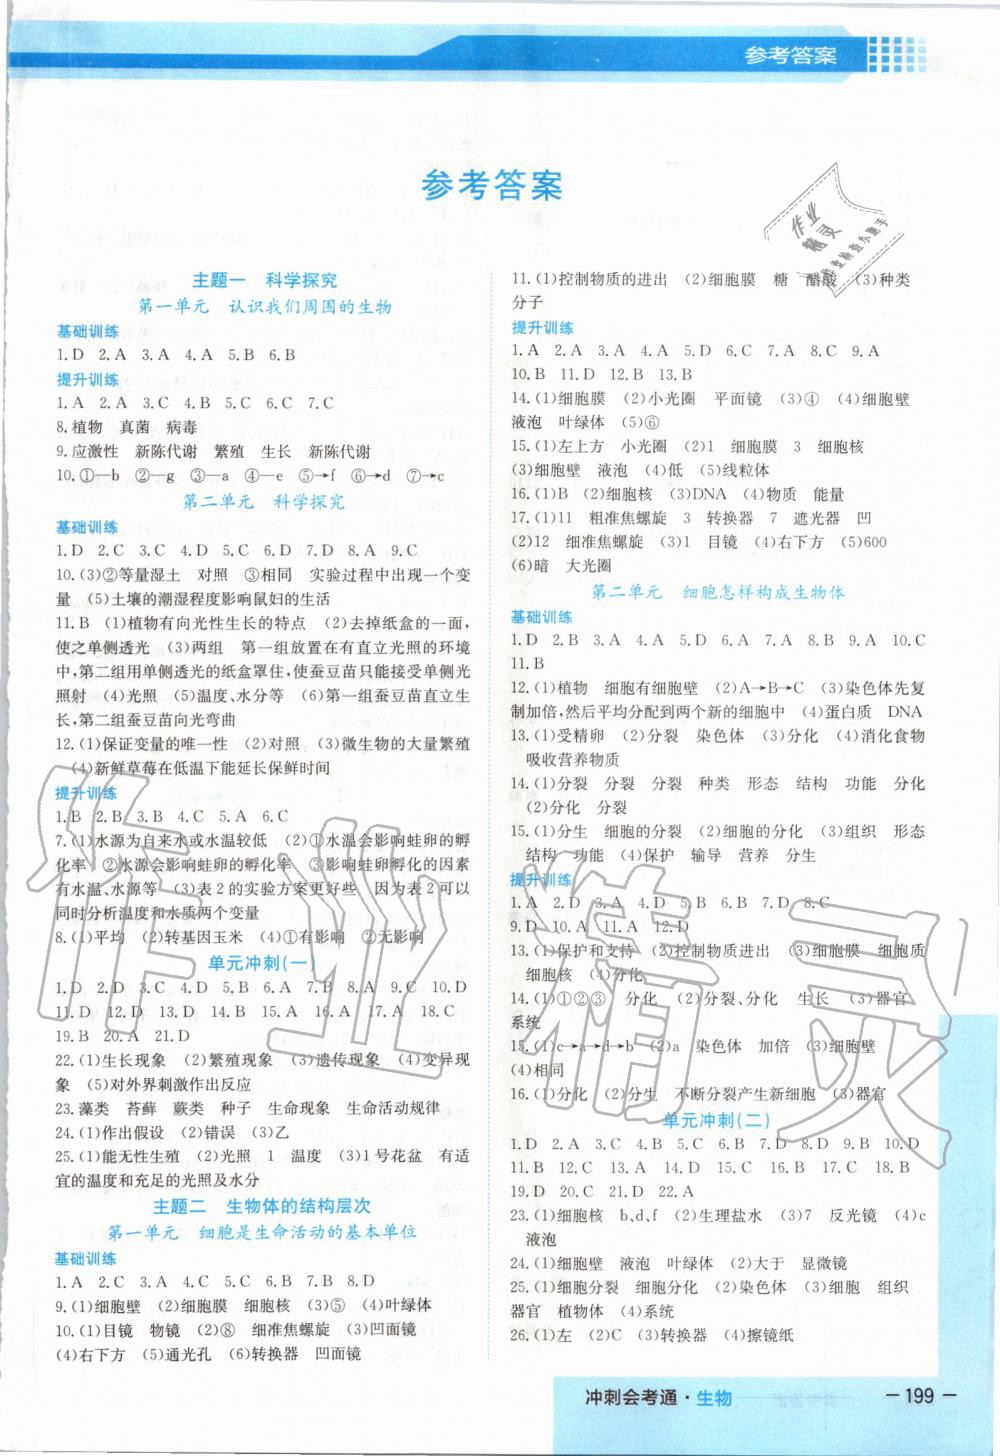 参考答案
参考答案
作业
精灵
作业检查小助手
主题一 科学探究
第一单元 认识我们周围的生物
基础训练
1.D 2.A 3.A 4.A 5.B 6.B
提升训练
1.A 2.A 3.C 4.B 5.C 6.C 7.C
8.植物 真菌 病毒
9.应激性 新陈代谢 繁殖 生长 新陈代谢
10.①—b ②—g ③—a ④—e ⑤→f ⑥→d ⑦→c
第二单元 科学探究
基础训练
1.D 2.C 3.C 4.D 5.C 6.D 7.D 8.A 9.C
10.(3)②等量湿土 对照 ③相同 实验过程中出现一个变
量 (5)土壤的潮湿程度影响鼠妇的生活
11.B (1)植物有向光性生长的特点 (2)去掉纸盒的一面,
使之单侧透光 (3)两组 第一组放置在有直立光照的环境
中,第二组用单侧透光的纸盒罩住,使蚕豆苗只能接受单侧光
照射 (4)光照 (5)温度、水分等 (6)第一组蚕豆苗直立生
长,第二组蚕豆苗向光弯曲
12.(1)保证变量的唯一性 (2)对照 (3)微生物的大量繁殖
(4)新鲜草莓在低温下能延长保鲜时间
提升训练
1.B 2.B 3.B 4.C 5.A 6.C
7.(1)水源为自来水或水温较低 (2)①水温会影响蛙卵的孵
化率 ②水源会影响蛙卵的孵化率 ③影响蛙卵孵化的因素
有水温、水源等 (3)表2的实验方案更好些 因为表2可以
同时分析温度和水质两个变量
8.(1)平均 (2)转基因玉米 (4)①有影响 ②无影响
单元冲刺(一)
1.D 2.D 3.C 4.D 5.B 6.A 7.B 8.A 9.C 10.D
11.D 12.D 13.D 14.B 15.B 16.A 17.A 18.C
19.B 20.A 21.D
22.(1)生长现象 (2)繁殖现象 (3)遗传现象 (4)变异现
象 (5)对外界刺激作出反应
23.藻类 苔藓 蕨类 种子 生命现象 生命活动规律
24.(1)作出假设 (2)错误 (3)乙
25.(1)能无性生殖 (2)光照 1 温度 (3)1号花盆 有适
宜的温度和充足的光照及水分
主题二 生物体的结构层次
第一单元 细胞是生命活动的基本单位
基础训练
1.A 2.C 3.A 4.C 5.B 6.B 7.B 8.D
9.(1)细胞壁 (2)细胞膜 细胞核 (3)⑤ (4)叶绿体
10.(1)目镜 物镜 (2)⑧ 细准焦螺旋 (3)凹面镜
(4)右下方 (5)通光孔 (6)转换器 凹面镜
11.(1)控制物质的进出 (2)细胞膜 糖 醋酸 (3)种类
分子
提升训练
1.A 2.A 3.A 4.A 5.D 6.C 7.A 8.C 9.A
10.B 11.D 12.B 13.B
14.(1)细胞膜 (2)小光圈 平面镜 (3)④ (4)细胞壁
液泡 叶绿体 (5)⑥
15.(1)左上方 小光圈 (2)1 细胞膜 3 细胞核
(3)细胞壁 液泡 (4)低 (5)线粒体
16.(1)B (2)细胞核 (3)DNA (4)物质 能量
17.(1)11 粗准焦螺旋 3 转换器 7 遮光器 凹
(2)12 细准焦螺旋 (3)1 目镜 (4)右下方 (5)600
(6)暗 大光圈
第二单元 细胞怎样构成生物体
基础训练
1.D 2.B 3.A 4.D 5.B 6.D 7.A 8.B 9.A 10.C
11.B
12.(1)植物 细胞有细胞壁 (2)A→B→C (3)染色体先复
制加倍,然后平均分配到两个新的细胞中 (4)蛋白质 DNA
13.(1)受精卵 (2)分裂 染色体 (3)分化 (4)消化食物
吸收营养物质
14.(1)分裂 分裂 分裂 种类 形态 结构 功能 分化
(2)分化 分裂
15.(1)分生 细胞的分裂 (2)细胞的分化 (3)组织 形态
结构 功能 (4)保护 输导 营养 分生
提升训练
1.A 2.D 3.A 4.D 5.A 6.B 7.D 8.C
9.D 10.A 11.A 12.D
13.(1)保护和支持 (2)控制物质进出 (3)细胞膜 细胞质
细胞核 (4)分化
14.(1)①②③ 分化 (2)分裂、分化 生长 (3)器官
系统
15.(1)c→a→d→b (2)a 染色体 加倍 (3)细胞壁
(4)相同
16.(1)分化 (2)分生 不断分裂产生新细胞 (3)器官
单元冲刺(二)
1.D 2.A 3.C 4.B 5.C 6.B 7.D 8.D 9.B 10.D
11.B 12.C 13.B 14.D 15.B 16.D 17.C 18.B
19.D 20.C 21.D 22.A
23.(1)细胞核 b、d、f (2)生理盐水 (3)7 反光镜 (4)c
液泡
24.(1)细胞壁 液泡 叶绿体 (2)大于 显微镜
25.(1)细胞分裂 细胞分化 (2)染色体 (3)细胞 组织
器官 植物体 (4)系统
26.(1)左 (2)C (3)转换器 (4)擦镜纸
作业精灵
冲刺会考通·生物 －199－